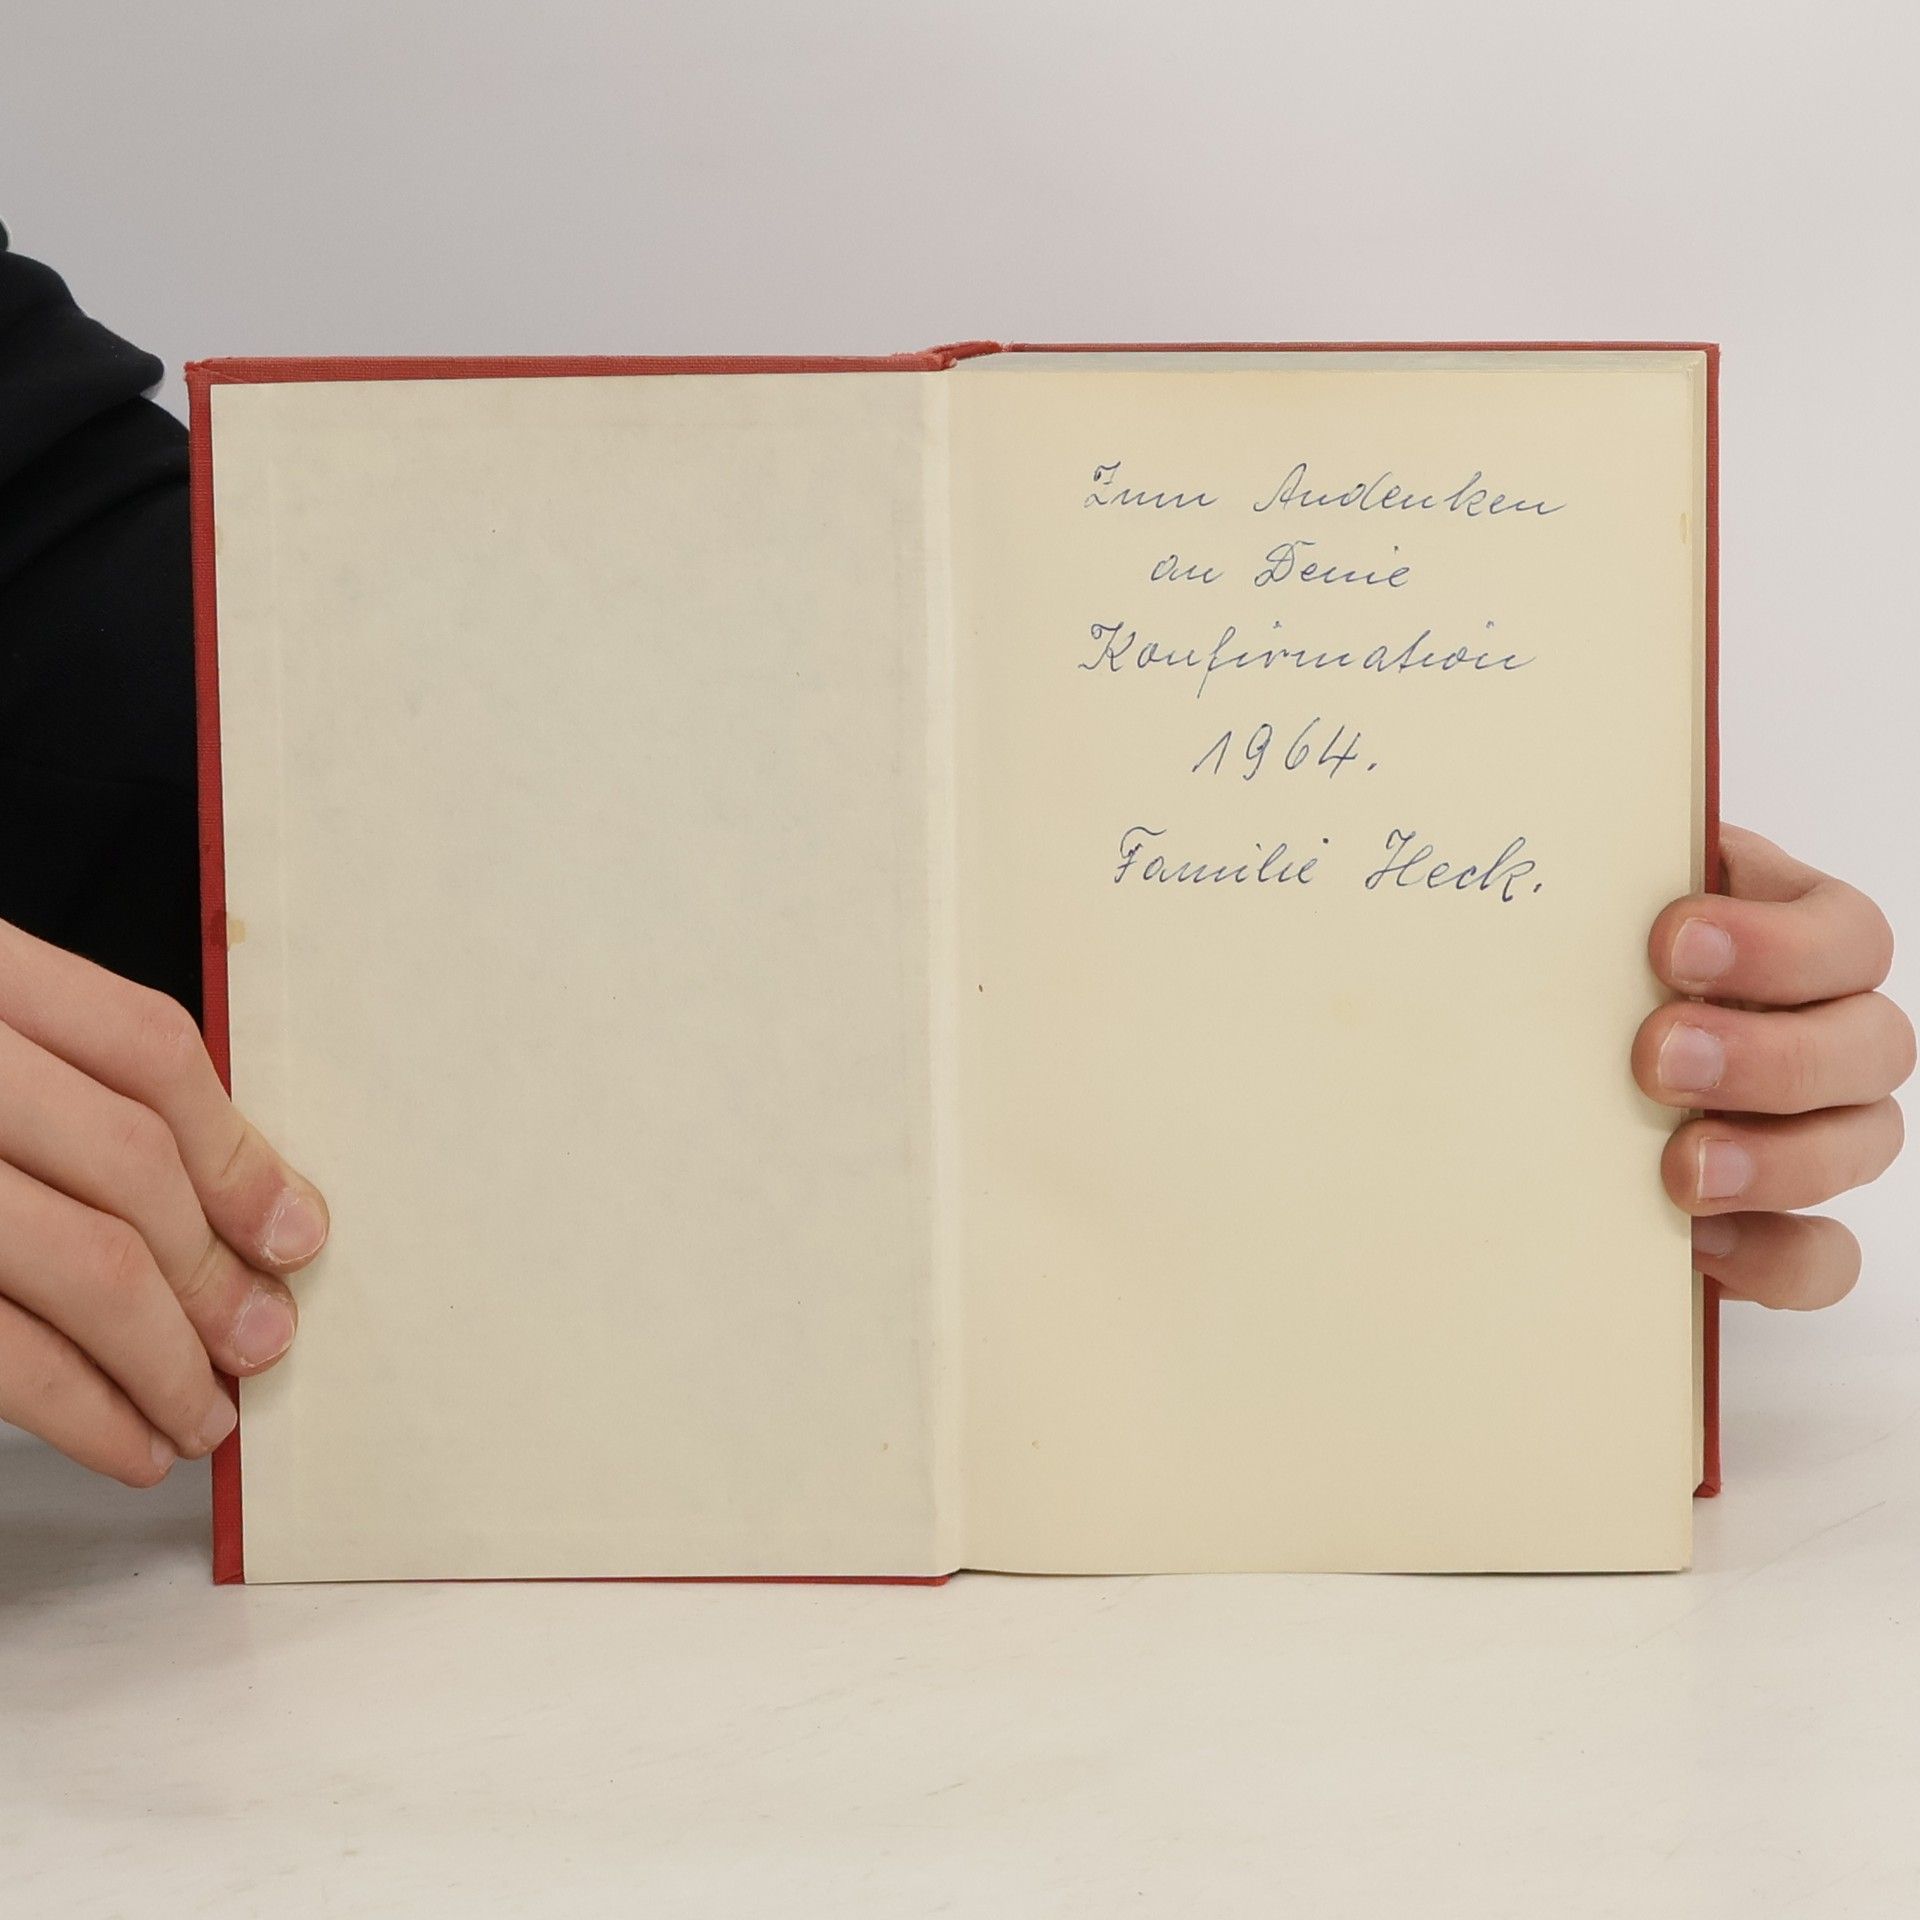 Zum Andenken
an Deine
Konfirmation
1964.
Familie Heck.